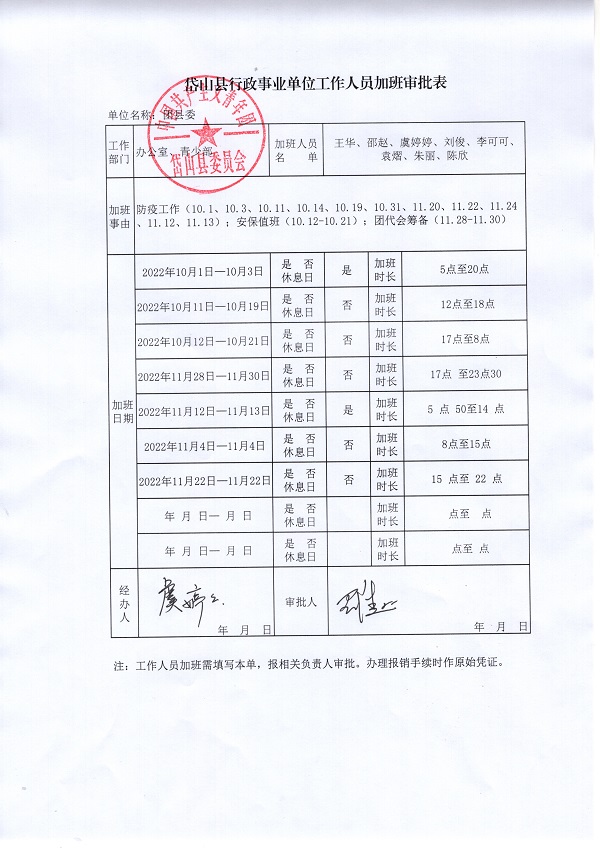 岱山县行政事业单位工作人员加班审批表
单位名称：团县委
中国共产主义青年团
岱山县委员会
工作部门 办公室、青少部 加班人员名 单 王华、邵赵、虞婷婷、刘俊、李可可、
袁熠、朱丽、陈欣
加班事由 防疫工作（10.1、10.3、10.11、10.14、10.19、10.31、11.20、11.22、11.24
、11.12、11.13）；安保值班（10.12-10.21）；团代会筹备（11.28-11.30）
加班日期
2022年10月1日—10月3日 是 否休息日 是 加班时长 5点至20点
2022年10月11日—10月19日 是 否休息日 否 加班时长 12点至18点
2022年10月12日—10月21日 是 否休息日 否 加班时长 17点至8点
2022年11月28日—11月30日 是 否休息日 否 加班时长 17点 至23点30
2022年11月12日—11月13日 是 否休息日 是 加班时长 5 点 50至14 点
2022年11月4日—11月4日 是 否休息日 否 加班时长 8点至15点
2022年11月22日—11月22日 是 否休息日 否 加班时长 15 点至 22 点
年 月 日— 月 日 是 否休息日 加班时长 点至 点
年 月 日— 月 日 是 否休息日 加班时长 点至 点
经办人 虞婷 审批人
年 月 日 年 月 日
注：工作人员加班需填写本单，报相关负责人审批。办理报销手续时作原始凭证。